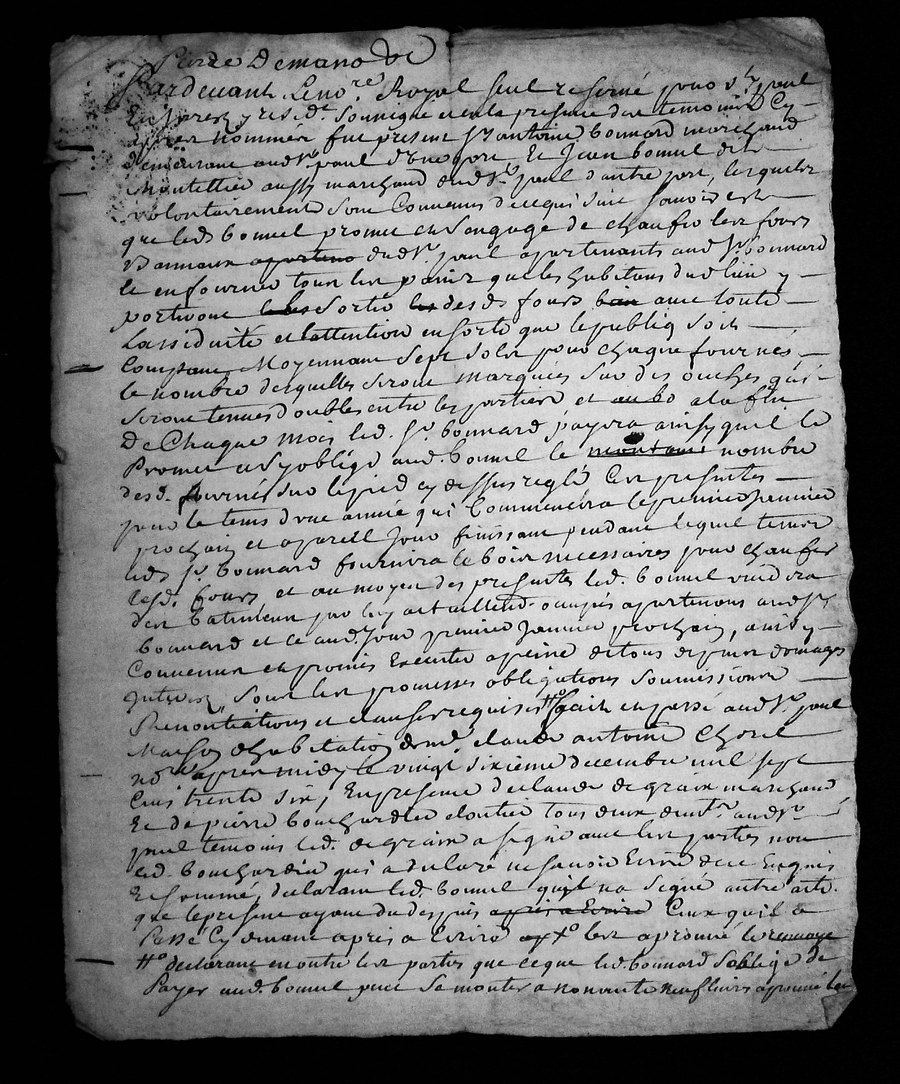 Pardevant Le no.re Royal Seul reservé pour St paul
En Jarest y resid.t Soussigné et en la presence des temoins Cy
apres Nommés fut present Sr antoine bonnard marchand
demeurant aud St paul d'une part, Et Jean bonnel dit
Montellier aussy marchand dud St. paul d'autre part, lesquels
volontairement Sont Convenus de ce qui Suit Scavoir est
que led bonnel promet et S'engage de chaufer les fours
Bannaux dud St. paul apartenants aud Sr. bonnard
et enfourner tous les pains que les habitans dud lieu y
porteront Sortir desd fours avec toute
Lassiduité et l'attention en sorte que le publiq Soit
Comptant, Moyennant Sept Sols pour chaque fournés
le nombre desquelles Seront Marquées Sur des ouches qui
Seront tenues doubles entre les parties et a la fin
De Chaque mois led. Sr. bonnard payera ainsy quil le
Promet et S'y oblige aud. bonnel le nombre
desd. fournés Sur le pied cy dessus reglé Ces presentes
pour le tems d'une année qui Commencera le premier Janvier
prochain et a pareil Jour finissant pendant lequel tems
led Sr. bonnard fournira le bois necessaires pour chaufer
lesd. fours et au moyen des presentes led. bonnel vuidera
des batimens par luy actuellem.t occupés apartenans aud Sr
bonnard et ce aud. Jour premier Janvier prochain, ainsy
Convenu et promis Executer a peine de tous depens domages
Interets, Sous les promesses obligations Soumissions
Renontiations et clauses requises #o fait et passé aud St. paul
Maison d'habitation dem.e claude antoine Chorel
no.re apres midy le vingt sixieme decembre mil sept
Cens trente Six, En presence de claude degraix marchand
Et de pierre bouchardier cloutier tous deux dem.ts aud St.
paul temoins led. degraix a signé avec les parties non
led. bouchardier qui a declaré ne Savoir Ecrire de ce Enquis
Et Sommé, declarant led. bonnel quil na Signé autre acte
que le present ayant du despuis Ceux quil a
Passé Cy devant apres a Ecrire les aprouvé le renvoye
#o declarant en outre les parties que ce que led. bonnard s'oblige de
Payer aud. bonnel peut Se monter a nonante neuf livres aprouvé